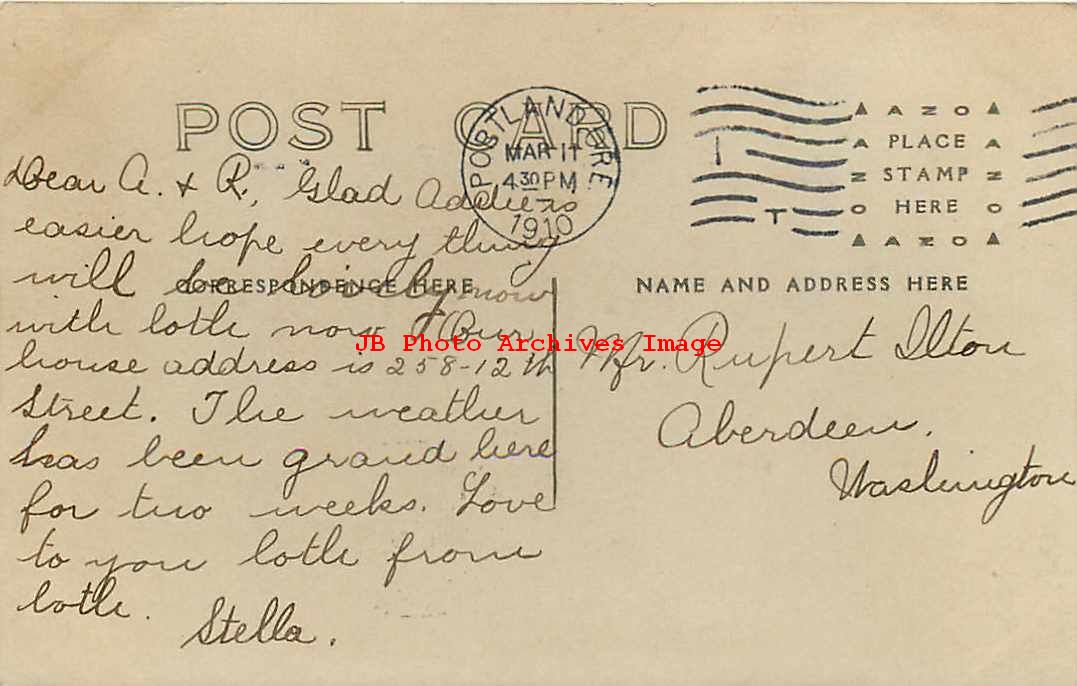 POST CARD
PORTLAND, ORE.
MAR 11
4 30 PM
1910
AZO
PLACE
STAMP
HERE
AZO
CORRESPONDENCE HERE
NAME AND ADDRESS HERE
Dear A. & R, Glad
easier hope every thing
will be lovely now
with both now. Our
house address is 258-12th
Street. The weather
has been grand here
for two weeks. Love
to you both from
both.
Stella.
Mr. Rupert Ilton
Aberdeen,
Washington
JB Photo Archives Image